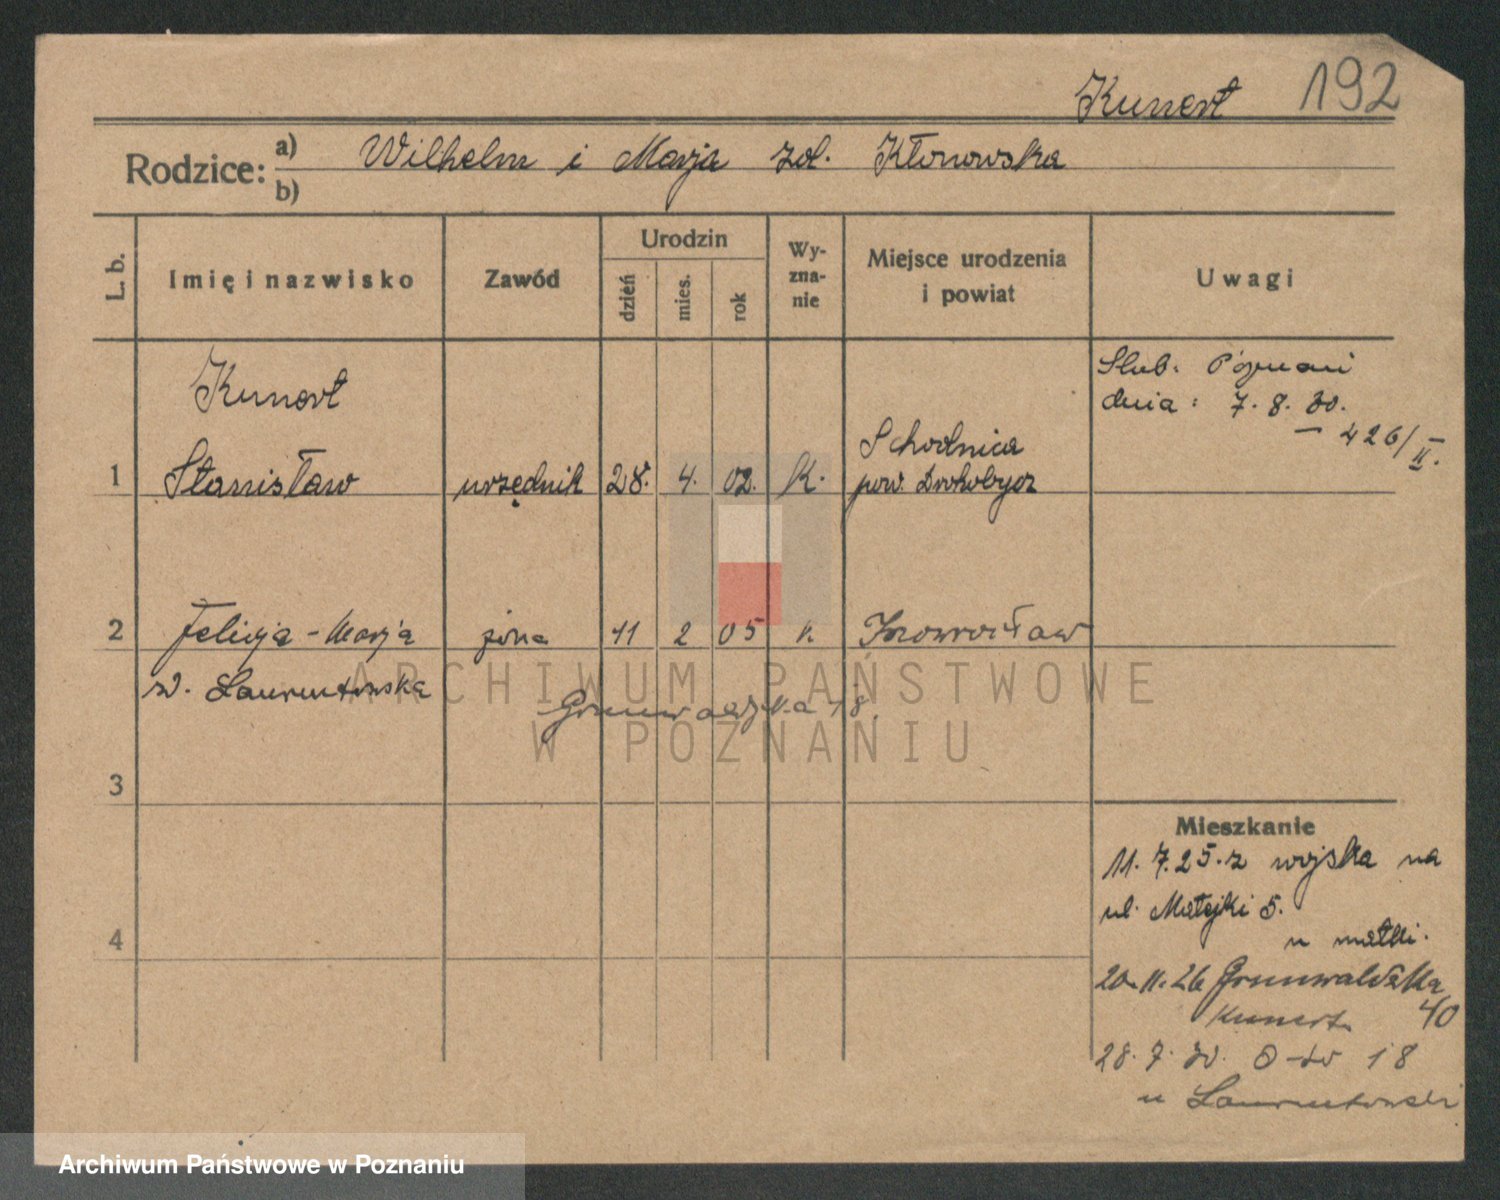 192
Kunert
Rodzice:
a) Wilhelm i Marja zol. Kłonowska
b)
L. b.
Imię i nazwisko
Zawód
Urodzin
dzień
mies.
rok
Wy-
zna-
nie
Miejsce urodzenia
i powiat
Uwagi
Kunert
1 Stanisław urzędnik 28. 4. 02. K. Schodnica
pow. Drohobycz
Slub. Poznań
dnia: 7. 8. 30.
— 426/II.
2 Felicja - Marja żona 11 2 05 K. Inowrocław
z d. Laurentowska
Grunwaldzka 18.
3
4
Mieszkanie
11. 7. 25. z wojska na
ul. Matejki 5.
u matki.
20. 11. 26 Grunwaldzka
Kunert 40
28. 7. 30. 18
u Laurentowski
ARCHIWUM PAŃSTWOWE
W POZNANIU
Archiwum Państwowe w Poznaniu